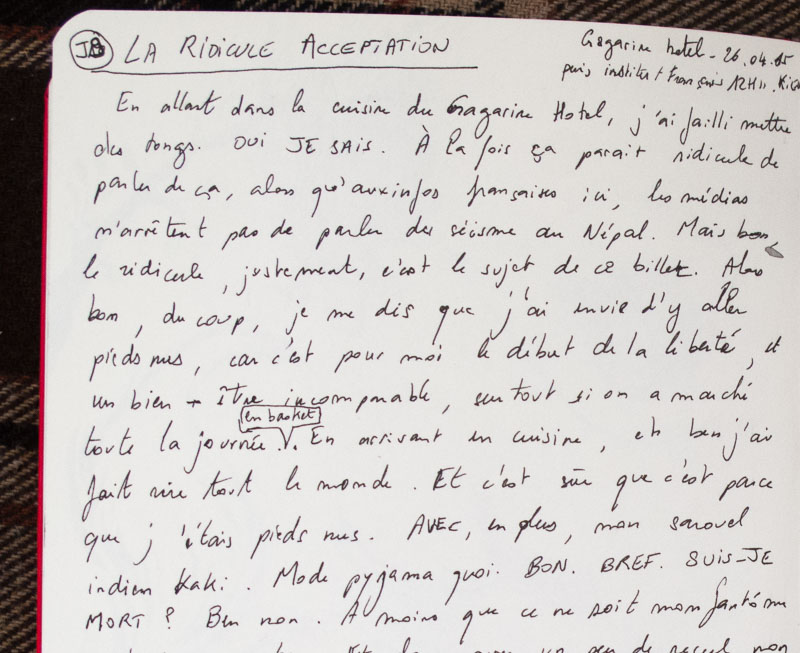 JB LA RIDICULE ACCEPTATION
Gagarine hotel - 26.04.15
puis institut Français 12H
En allant dans la cuisine du Gagarine Hotel, j'ai failli mettre
des tongs. OUI JE SAIS. À la fois ça parait ridicule de
parler de ça, alors qu'aux infos françaises ici, les médias
n'arrêtent pas de parler du séisme au Népal. Mais bon,
le ridicule, justement, c'est le sujet de ce billet. Alors
bon, du coup, je me dis que j'ai envie d'y aller
pieds nus, car c'est pour moi le début de la liberté, et
un bien-être incomparable, surtout si on a marché
en basket
toute la journée. En arrivant en cuisine, eh ben j'ai
fait rire tout le monde. Et c'est sûr que c'est parce
que j'étais pieds nus. AVEC, en plus, mon sarouel
indien kaki. Mode pyjama quoi. BON. BREF. SUIS-JE
MORT ? Ben non. A moins que ce ne soit mon fantôme
un peu de recul non